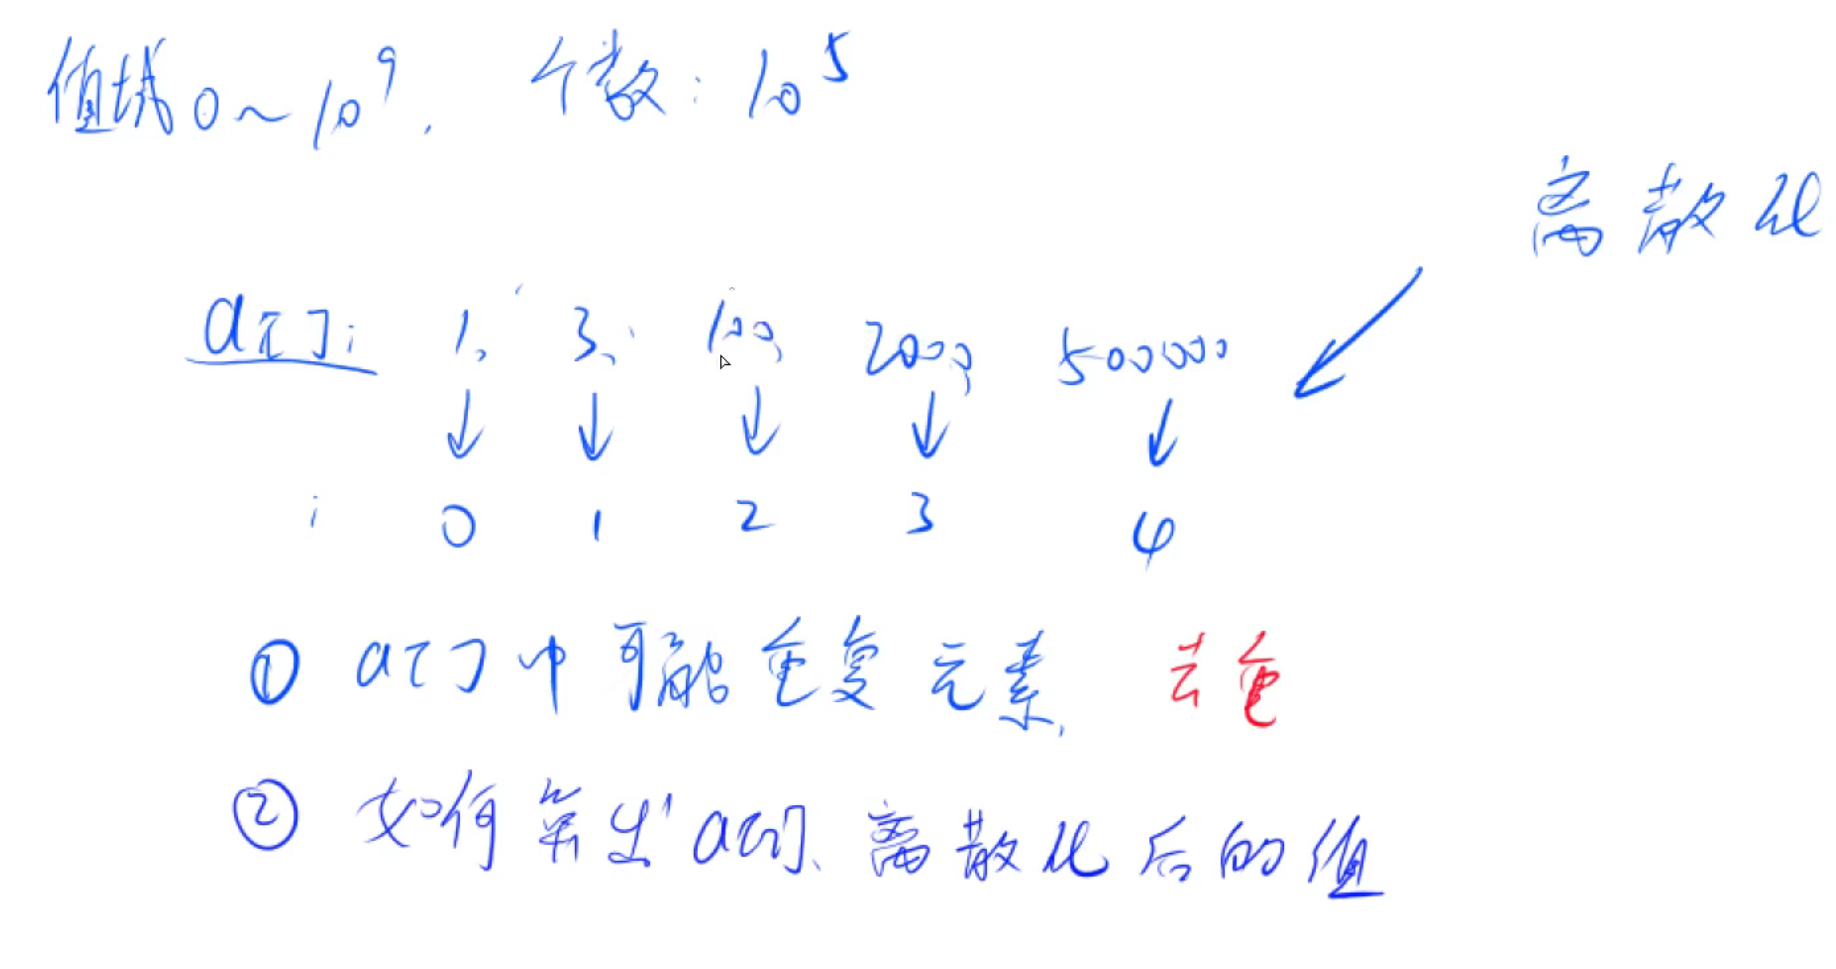 值域0~10⁹, 个数:10⁵
离散化
a[]: 1, 3, 100, 2000, 500000
↓ ↓ ↓ ↓ ↓
i 0 1 2 3 4
① a[]中可能重复元素, 去重
② 如何算出a[i]离散化后的值